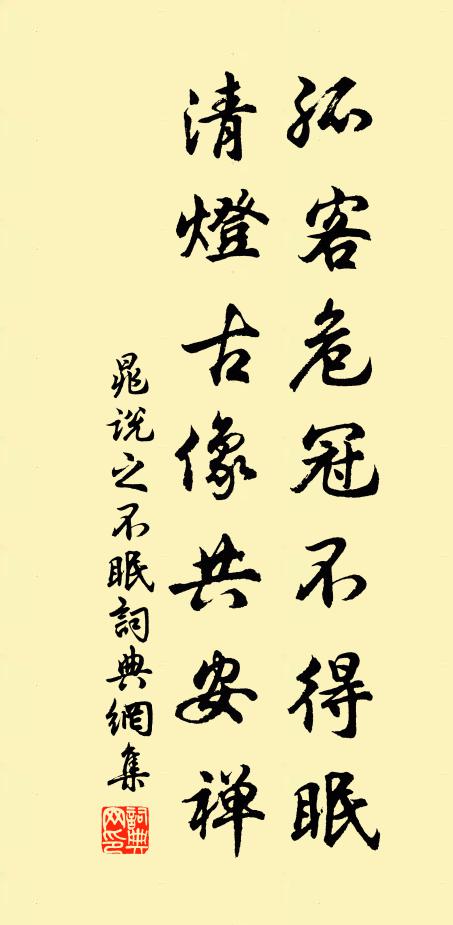 孤客危冠不得眠
清燈古像共安禅
晁説之不眠詞典網集
詞典網印